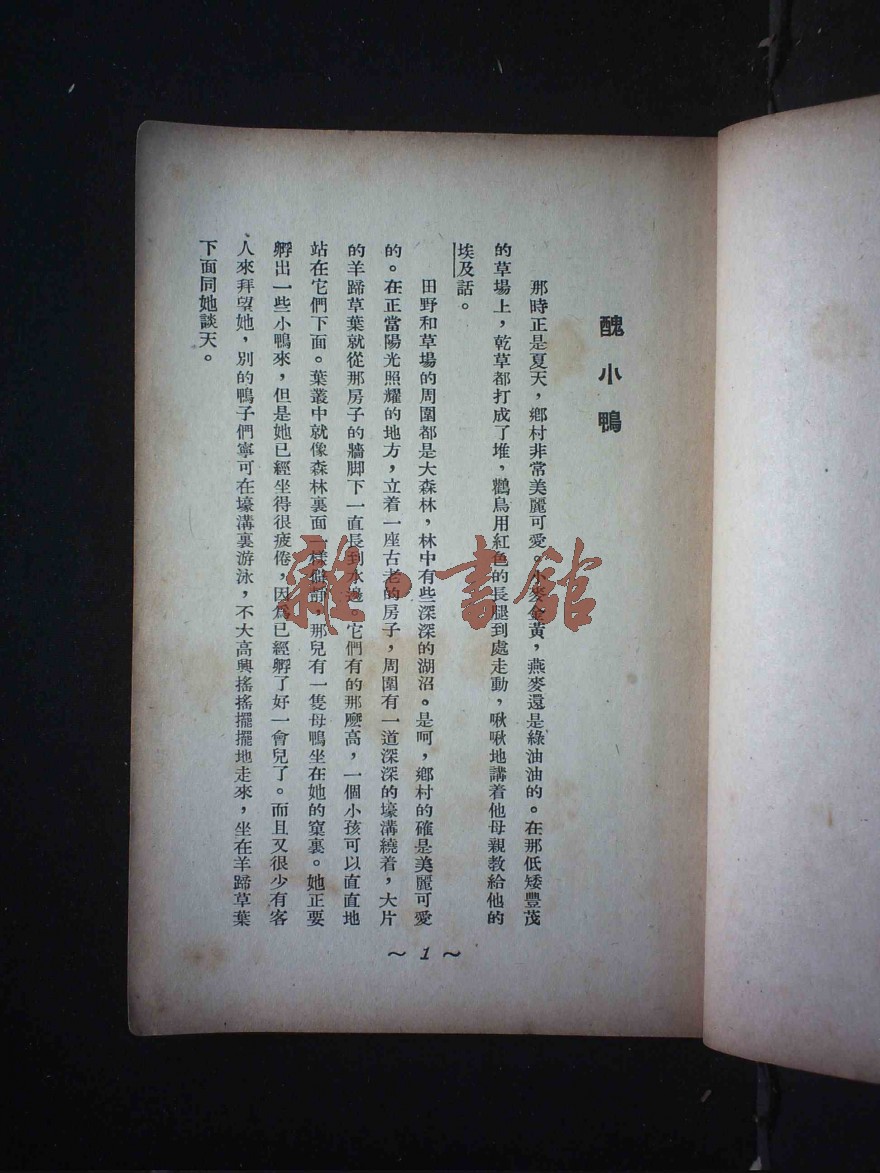 醜小鴨
那時正是夏天，鄉村非常美麗可愛。小麥金黃，燕麥還是綠油油的。在那低矮豐茂
的草場上，乾草都打成了堆，鸛鳥用紅色的長腿到處走動，啾啾地講着他母親教給他的
埃及話。
田野和草場的周圍都是大森林，林中有些深深的湖沼。是呵，鄉村的確是美麗可愛
的。在正當陽光照耀的地方，立着一座古老的房子，周圍有一道深深的壕溝繞着，大片
的羊蹄草葉就從那房子的牆脚下一直長到水邊。它們有的那麽高，一個小孩可以直直地
站在它們下面。葉叢中就像森林裏面一樣僻靜，那兒有一隻母鴨坐在她的窠裏。她正要
孵出一些小鴨來，但是她已經坐得很疲倦，因爲已經孵了好一會兒了。而且又很少有客
人來拜望她，別的鴨子們寧可在壕溝裏游泳，不大高興搖搖擺擺地走來，坐在羊蹄草葉
下面同她談天。
～1～
雜·書館